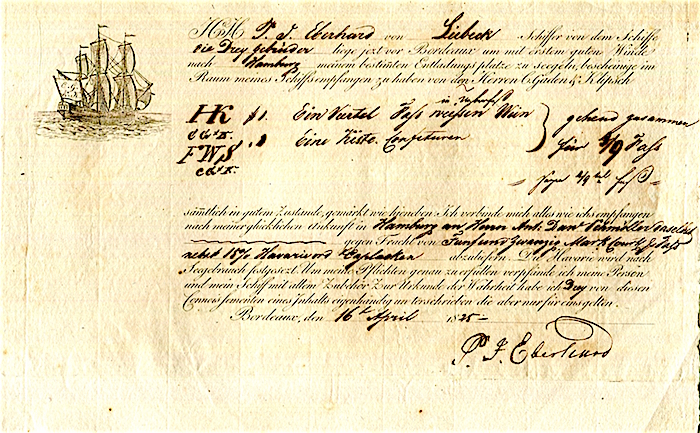 Ich P. J. Eberhard von Lübeck Schiffer von dem Schiffe
die Drey Gebrüder liege jezt vor Bordeaux um mit erstem guten Winde
nach Hamburg meinem bestimten Entladungsplatze zu Seegeln, bescheinige im
Raum meines Schiffs empfangen zu haben von den Herren C. Gäden & Klipsch
HK 1. Ein Viertel Fass weissen Wein
C G & K. 1 Eine Kiste Confituren
gehend zusammen
FWS für 2/9 Fass
C G K.
sämtlich in gutem Zustande, gemärkt wie hieneben. Ich verbinde mich alles wie ichs empfangen
nach meiner glücklichen Ankunft in Hamburg an Herrn Ant. Dav. daselbst
gegen Fracht von Fünf und Zwanzig Mark Court. p. Fass
nebst 15 % Havarie ord. & Kaplacken abzuliefern. Die Havarie wird nach
Seegebrauch festgesezt. Um meine Pflichten genau zu erfüllen verpfände ich meine Person
und mein Schiff mit allem Zubehör. Zur Urkunde der Wahrheit habe ich Drey von diesen
Connossementen eines Inhalts eigenhändig unterschrieben die aber nur für eins gelten.
Bordeaux, den 16 t. April 1825
P. J. Eberhard